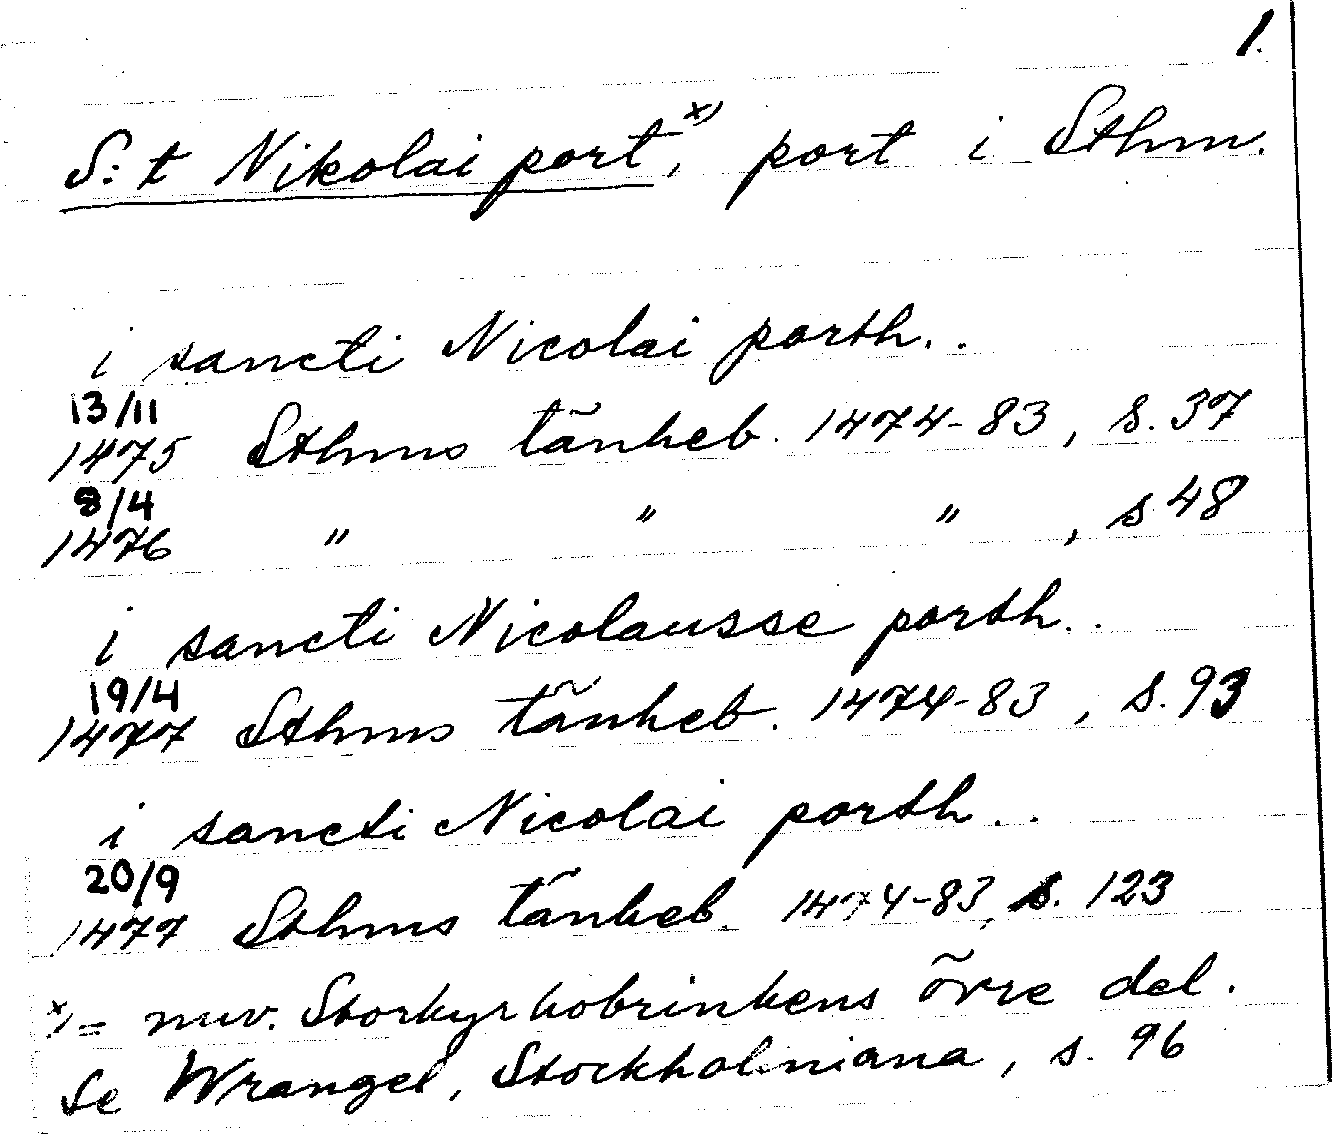 1.
S:t Nikolai port x), port i Sthm.
i sancti Nicolai porth..
13/11
1475 Sthms tänkeb. 1474-83, s. 37
8/4
1476 " " " , s 48
i sancti Nicolausse porth..
19/4
1477 Sthms tänkeb. 1474-83, s. 93
i sancti Nicolai porth..
20/9
1477 Sthms tänkeb. 1474-83, s. 123
x) = nuv. Storkyrkobrinkens övre del.
Se Wrangel, Stockholmiana, s. 96